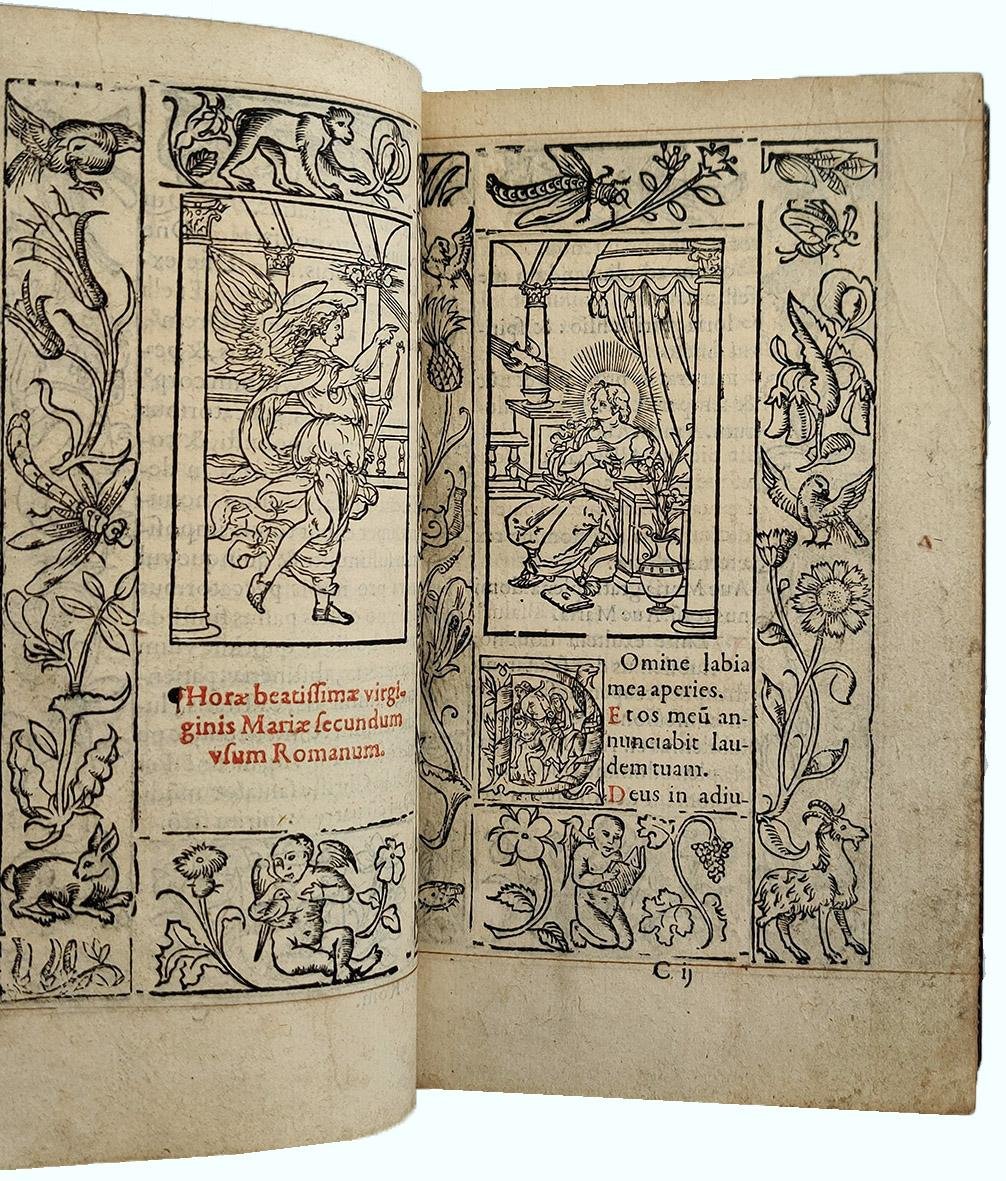 ¶Horæ beatiſſimæ virgi-
ginis Mariæ ſecundum
vſum Romanum.
DOmine labia
mea aperies.
Et os meū an-
nunciabit lau-
dem tuam.
Deus in adiu-
C ij